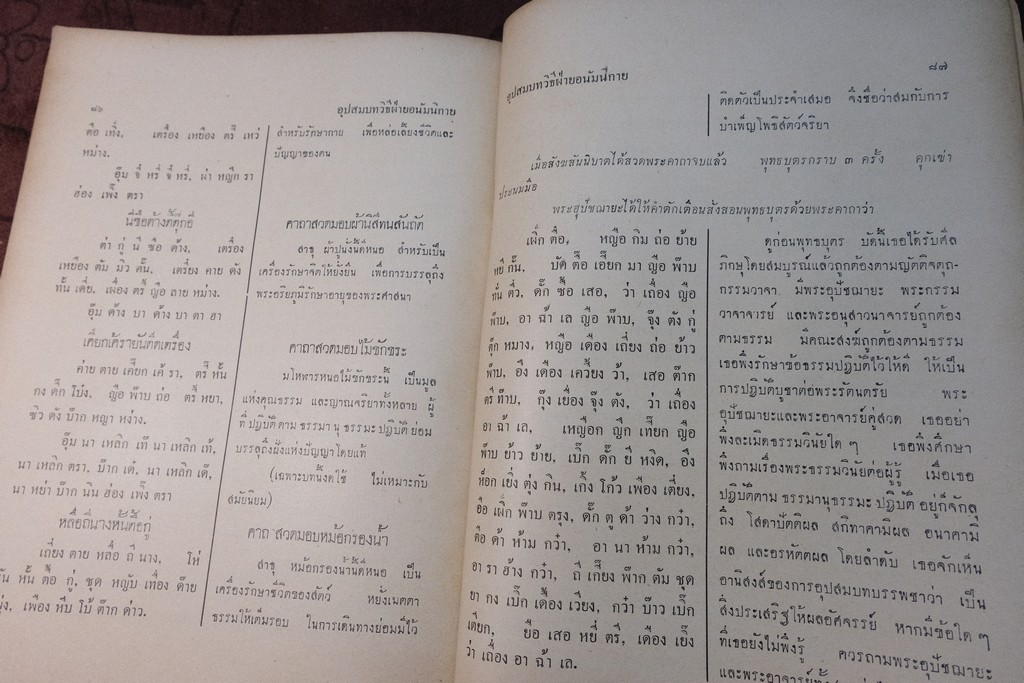 ๘๖
อุปสมบทวิธีฝ่ายอนัมนิกาย
คือ เท่ง, เครื่อง เหยื่อง ตรี เหว่
หม่าง.
อุ๊ม จี๊ หรี่ จี๊ หรี่, ผ่า หญีก รา
ฮ่อง เพ็ง ตรา
ต่า กู่ นี ซือ ด้าง, เครื่อง
เหยื่อง ตัม มิว ตั้น, เตรี่ยง คาย ดัง
ทั้น เดีย, เผื่อง ตรี ญือ ลาย หม่าง.
อุ๊ม ด้าง บา ด้าง บา ตา ฮา
ค่าย ตาย เคี้ยก เค้ รา, ตรี หั้น
กง ดึ๊ก โป่ง, ญือ พ้าบ ถ่อ ตรี หยา,
ซิว ดัง บ๊าก หญา หง่าง.
อุ๊ม นา เหลิก เที นา เหลิก เท้,
นา เหลิก ตรา. บ๊าก เด๋, นา เหลิก เด๊,
นา หย่า บ๊าก นิน ฮ่อง เพ็ง ตรา
เถี่ยง ตาย หลื่อ ถี นาง, โห่
หั้น ต๊อ กู่, ชุด หญับ เที่อง ด๊าย
เพื่อง หีบ โบ้ ต๊าก ด่าว.
สำหรับรักษากาย เพื่อหล่อเลี้ยงชีวิตและ
ปัญญาของตน
คาถาสวดมอบผ้านิสีทนสันถัต
สาธุ ผ้าปูนั่งนี้คืหนอ สำหรับเป็น
เครื่องรักษาจิตให้ยั่งยืน เพื่อการบรรลุถึง
พระอริยภูมิรักษาอายุของพระศาสนา
คาถาสวดมอบไม้ชักชระ
มโหฬารหนอไม้ชักชระนี้ เป็นมูล
แห่งคุณธรรม และญาณจริยาทั้งหลาย ผู้
ที่ ปฏิบัติ ตาม ธรรมา นุ ธรรมะ ปฏิบัติ ย่อม
บรรลุถึงฝั่งแห่งปัญญาโดยแท้
(เฉพาะบทนี้งดใช้ ไม่เหมาะกับ
สมัยนิยม)
คาถา สวดมอบหม้อกรองน้ำ
สาธุ หม้อกรองน้ำนี้คืหนอ เป็น
เครื่องรักษาชีวิตของสัตว์ หยั่งเมตตา
ธรรมให้เต็มรอบ ในการเดินทางย่อมมีไว้
อุปสมบทวิธีฝ่ายอนัมนิกาย
๘๗
ติดตัวเป็นประจำเสมอ จึงชื่อว่าสมกับการ
บำเพ็ญโพธิสัตว์จริยา
เมื่อสังฆสันนิบาตได้สวดพระคาถาจบแล้ว พุทธบุตรกราบ ๓ ครั้ง คุกเข่า
ประนมมือ
พระอุปัชฌายะได้ให้คำตักเตือนสั่งสอนพุทธบุตรด้วยพระคาถาว่า
เผิ๊ก ตื๋อ, หญือ กิม ถ่อ ย้าย
หยี กั๊น. บัด ตื๋อ เอี๊ยก มา ญือ พ้าบ
ทั่น ตึ๋ว, ดั๊ก ซื๋อ เสอ, ว่า เถื่อง ญือ
พ้าบ, อา ฉ้า เล ญือ พ้าบ, จุ๊ง ตัง กู่
ตุ๊ก หมาง, หญือ เดือง เถี่ยง ถ่อ ย้าว
พ้าบ, อึง เดือง เควี้ยง ว้า, เสอ ต๊าก
ตรี ท๊าบ, กุ๊ง เยื่อง จุ๊ง ตัง, ว่า เถื่อง
อา ฉ้า เล, เหญือก ญี๊ก เที้ยก ญือ
พ้าบ ย้าว ย้าย. เบิ๊ก ดั๊ก ยี หงิด, อึง
ห็อก เยี่ง ตุ่ง กิน, เกิ้ง โก๊ว เพื่อง เตี่ยง,
อื๋อ เผิ๊ก พ้าบ ตรุง, ดั๊ก ตู ด้า ว่าง กว๋า,
ตือ ด้า ห้าม กว๋า, อา นา ห้าม กว๋า,
อา รา ฮ้าง กว๋า, ถี เกี๊ยง พ๊าก ตัม ชุด
ยา กง เบิ๊ก เดื๋อง เวียง, กว๋า บ๊าว เบิ๊ก
เตี๊ยก, ยือ เสอ หยี ตรี, เดือง เยิ๊ง
ว่า เถื่อง อา ฉ้า เล.
ดูก่อนพุทธบุตร บัดนี้เธอได้รับศีล
ภิกษุโดยสมบูรณ์แล้วถูกต้องตามญัตติจตุถ-
กรรมวาจา มีพระอุปัชฌายะ พระกรรม
วาจาจารย์ และพระอนุสาวนาจารย์ถูกต้อง
ตามธรรม มีคณะสงฆ์ถูกต้องตามธรรม
เธอพึงรักษาข้อธรรมปฏิบัติไว้ให้ดี ให้เป็น
การปฏิบัติบูชาต่อพระรัตนตรัย พระ
อุปัชฌายะและพระอาจารย์คู่สวด เธออย่า
พึงละเมิดธรรมวินัยใด ๆ เธอพึงศึกษา
พึงถามเรื่องพระธรรมวินัยต่อผู้รู้ เมื่อเธอ
ปฏิบัติตาม ธรรมานุธรรมะ ปฏิบัติ อยู่ก็จักลุ
ถึง โสดาปัตติผล สกิทาคามิผล อนาคามิ
ผล และอรหัตตผล โดยลำดับ เธอจักเห็น
อานิสงส์ของการอุปสมบทบรรพชาว่า เป็น
สิ่งประเสริฐให้ผลอัศจรรย์ หากมีข้อใด ๆ
ที่เธอยังไม่พึงรู้ ควรถามพระอุปัชฌายะ
และพระอาจารย์